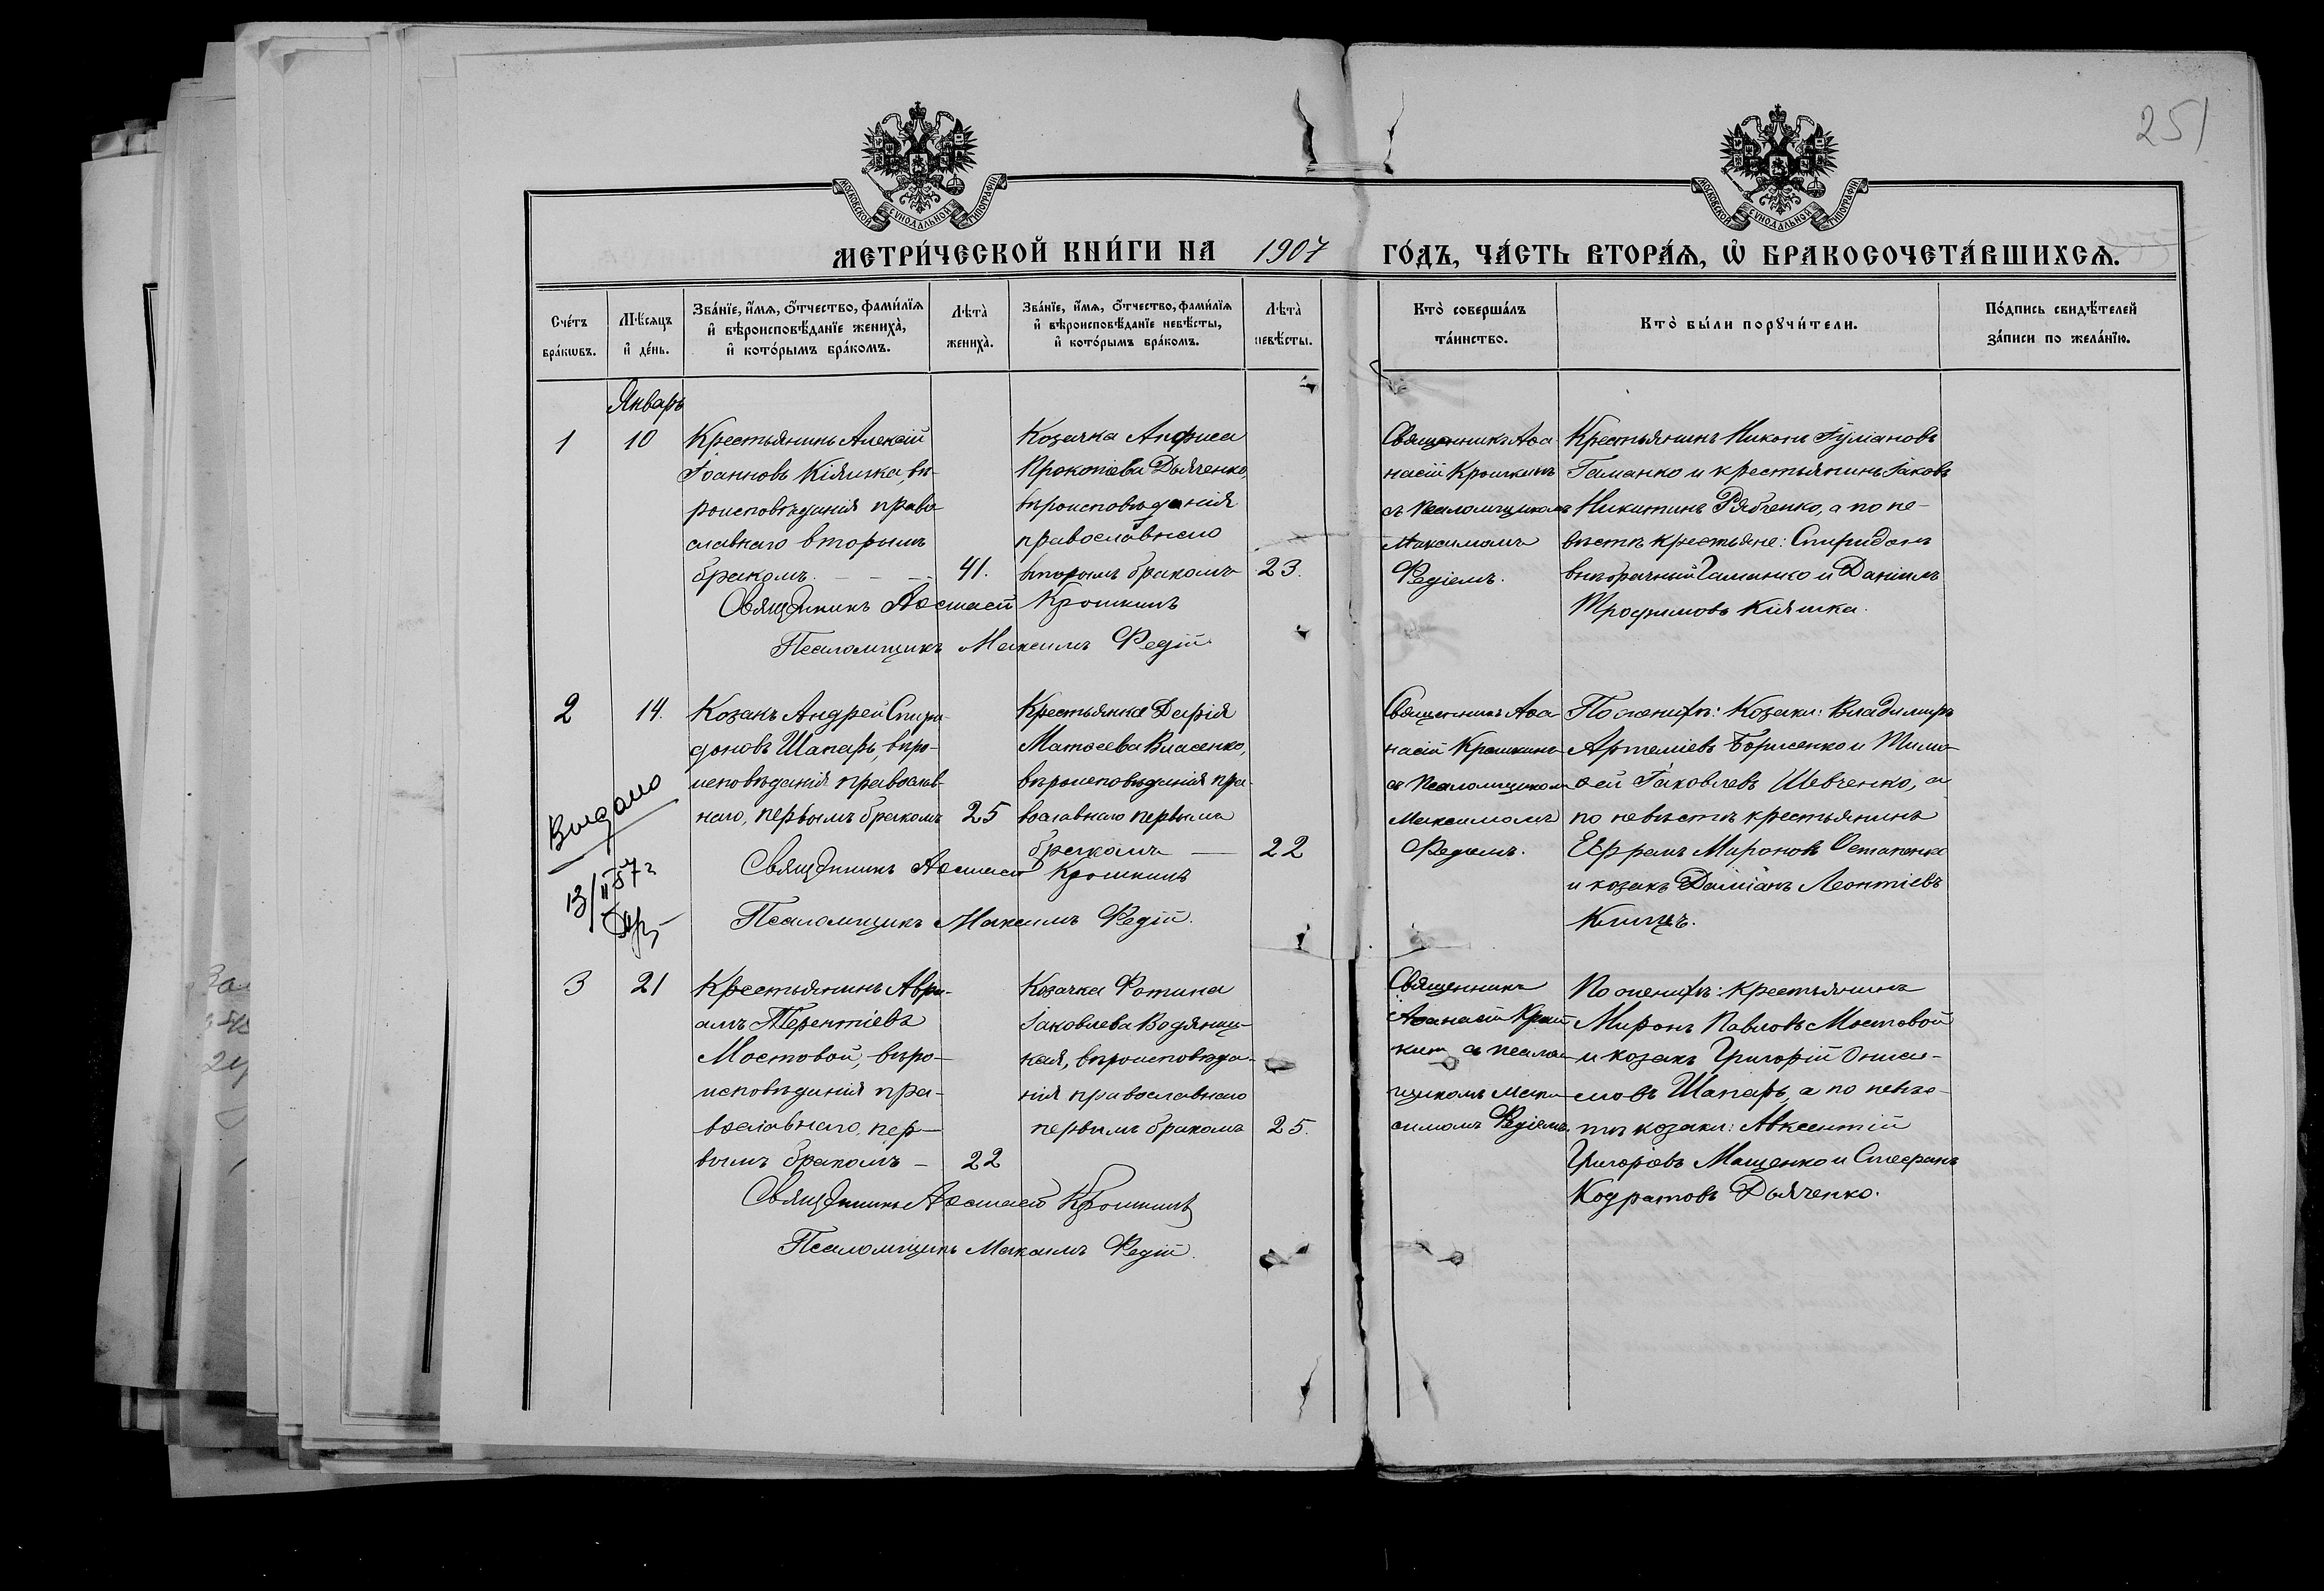 251
МОСКОВСКОЙ СѴНОДАЛЬНОЙ ТИПОГРАФІИ
МОСКОВСКОЙ СѴНОДАЛЬНОЙ ТИПОГРАФІИ
МЕТРИ́ЧЕСКОЙ КНИ́ГИ НА 1907 ГО́ДЪ, ЧА́СТЬ ВТОРА́Ѧ, Ѡ҆ БРАКОСОЧЕТА́ВШИХСѦ.
Сче́тъ
бра́кѡвъ.
Мѣ́сѧцъ
и҆ де́нь.
Зва́нїе, и҆́мѧ, ѻ҆́тчество, фами́лїѧ
и҆ вѣроисповѣ́данїе жениха̀,
и҆ кото́рымъ бра́комъ.
Лѣта̀
жениха̀.
Зва́нїе, и҆́мѧ, ѻ҆́тчество, фами́лїѧ
и҆ вѣроисповѣ́данїе невѣ́сты,
и҆ кото́рымъ бра́комъ.
Лѣта̀
невѣ́сты.
Кто̀ соверша́лъ
та́инство.
Кто̀ бы́ли порꙋчи́тели.
По́дпись свидѣ́телей
за́писи по жела́нїю.
Январь
1
10
Крестьянинъ Алексій
Іоанновъ Кіяшка, вѣ-
роисповѣданія право
славнаго вторымъ
бракомъ.
41.
Козачка Анфиса
Прокопіева Дьяченко,
вѣроисповѣданія
православнаго
вторымъ бракомъ
23.
Священникъ Аѳа
насій Крошкинъ
съ псаломщикомъ
Максимомъ
Редіемъ.
Крестьянинъ Никонъ
Гаманко и крестьянинъ Іаковъ
Никитинъ Рябченко, а по не-
вѣстѣ крестьяне: Спиридонъ
Гаманко и Даніилъ
Трофимовъ Кіяшка.
Священникъ Аѳанасій Крошкинъ
Псаломщикъ Максимъ Редій.
2
14.
Козакъ Андрей Спири-
доновъ Шапарь, вѣро-
исповѣданія православ-
наго, первымъ бракомъ
25
Крестьянка Дарія
Матѳеева Власенко,
вѣроисповѣданія пра-
вославнаго первымъ
бракомъ —
22
Священникъ Аѳа
насій Крошкинъ
съ псаломщикомъ
Максимомъ
Редіемъ.
По жениху: Козаки: Владимиръ
Артеміевъ Борисенко и Тимо-
ѳей Іаковлевъ Шевченко, а
по невѣстѣ крестьянинъ
Ефремъ Мироновъ Остапенко
и козакъ Даміанъ Леонтіевъ
Священникъ Аѳанасій Крошкинъ
Псаломщикъ Максимъ Редій.
Выдано
13/II 57 г
3
21
Крестьянинъ Авра-
амъ Терентіевъ
Мостовой, вѣро-
исповѣданія пра-
вославнаго, пер-
вымъ бракомъ –
22
Козачка Фотина
Іаковлева Водяниц-
кая, вѣроисповѣда-
нія православнаго
первымъ бракомъ
25.
Священникъ
Аѳанасій Крош
кинъ съ псалом
щикомъ Макси
симомъ Редіемъ.
По жениху: крестьянинъ
Миронъ Павловъ Мостовой
и козакъ Григорій Ониси-
мовъ Шапарь, а по невѣс-
тѣ козаки: Авксентій
Григоріевъ Мащенко и Стефанъ
Кодратовъ Дьяченко.
Священникъ Аѳанасій Крошкинъ
Псаломщикъ Максимъ Редій.